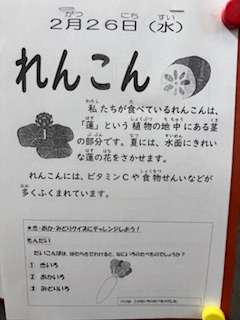 ２月２６日（水）
れんこん
私たちが食べているれんこんは、
「蓮」という植物の地中にある茎
の部分です。夏には、水面にきれい
な蓮の花をさかせます。
れんこんには、ビタミンCや食物せんいなどが
多くふくまれています。
★き・あか・みどりクイズにチャレンジしよう！
もんだい
① きいろ
② あかいろ
③ みどりいろ